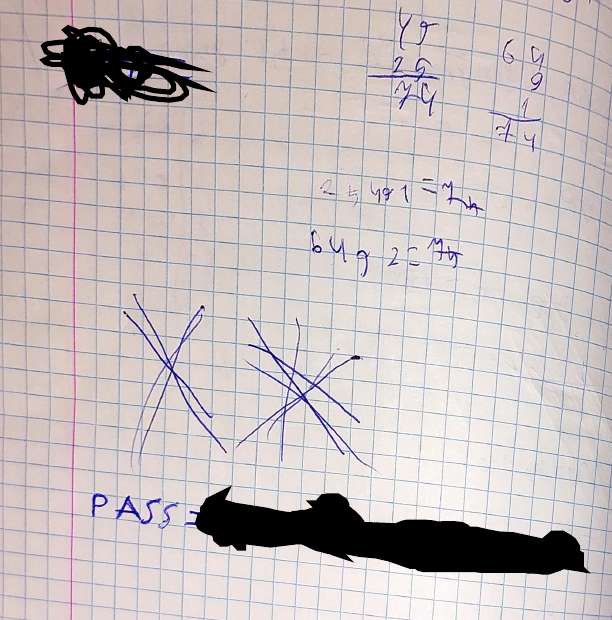 49
25
74
64
9
1
74
25, 49 1 = 74
64 9 2 = 74
PASS =